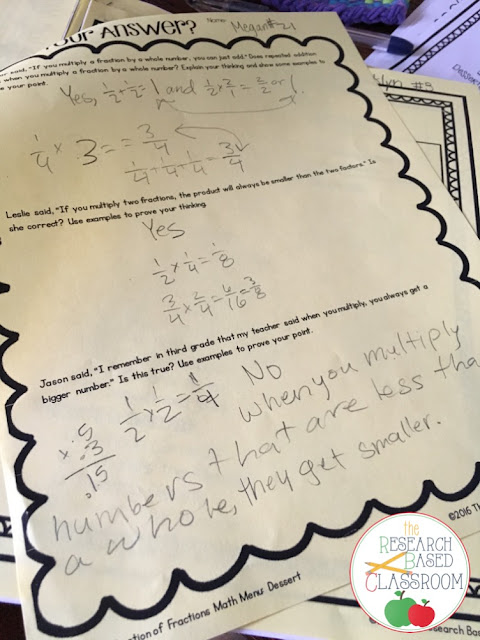 YOUR ANSWER?
Name: Megan #21
said, "If you multiply a fraction by a whole number, you can just add." Does repeated addition
when you multiply a fraction by a whole number? Explain your thinking and show some examples to
your point.
Yes, 1/2 + 1/2 = 1 and 1/2 × 2/1 = 2/2 or 1.
1/4 × 3 = = 3/4
1/4 + 1/4 + 1/4 = 3/4
Leslie said, "If you multiply two fractions, the product will always be smaller than the two factors." Is
she correct? Use examples to prove your thinking.
Yes
1/2 × 1/4 = 1/8
3/4 × 2/4 = 6/16 = 3/8
Jason said, "I remember in third grade that my teacher said when you multiply, you always get a
bigger number." Is this true? Use examples to prove your point.
.5
× .3
.15
1/2 × 1/2 = 1/4
No
when you multiply
numbers that are less tha
a whole, they get smaller.
©2016 Th
tion of Fractions Math Menus Dessert
the
RESEARCH
BASED
CLASSROOM
lyn #5
Research Bas